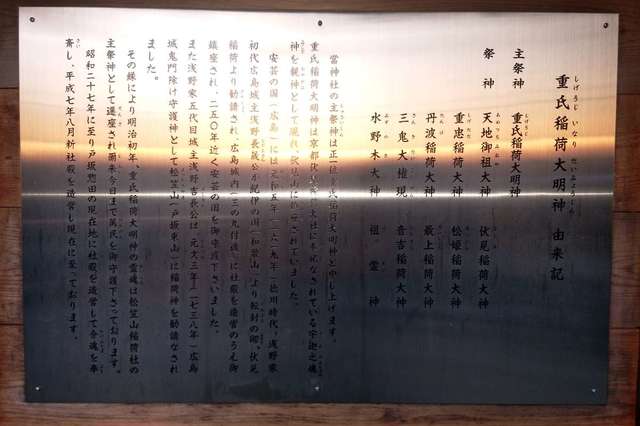 重氏稲荷大明神 由来記
しげうじ いなり だいみょうじん
主祭神 重氏稲荷大明神
祭神 天地御祖大神 伏見稲荷大神
重忠稲荷大神 松姫稲荷大神
丹波稲荷大神 最上稲荷大神
三鬼大権現 音吉稲荷大神
水野木大神 祖霊神
當神社の主祭神は正一位重氏稲荷大明神と申し上げます。
重氏稲荷大明神は京都伏見稲荷大社に奉祀なされている宇迦之魂
神を親神として現在伏見山に鎮座されていました。
安芸の国(広島)には元和五年(一六一九年)徳川時代、浅野家
初代広島城主浅野長晟公が紀伊の国(和歌山)より転封の際、伏見
稲荷より勧請され、広島城内(三の丸付近)に社殿を造営のうえ御
鎮座され、二五〇年近く安芸の国を御守護下さいました。
また浅野家五代目城主浅野吉長公は元文三年(一七三八年)広島
城鬼門除け守護神として松笠山(戸坂東山)に稲荷神を勧請なされ
ました。
その縁により明治初年、重氏稲荷大明神の霊魂は松笠山稲荷社の
主祭神として遷座され爾来今日まで萬民を御守護下さっております。
昭和二十七年に至り戸坂惣田の現在地に社殿を造営して合魂を奉
斎し、平成七年八月新社殿を造営し現在に至っております。